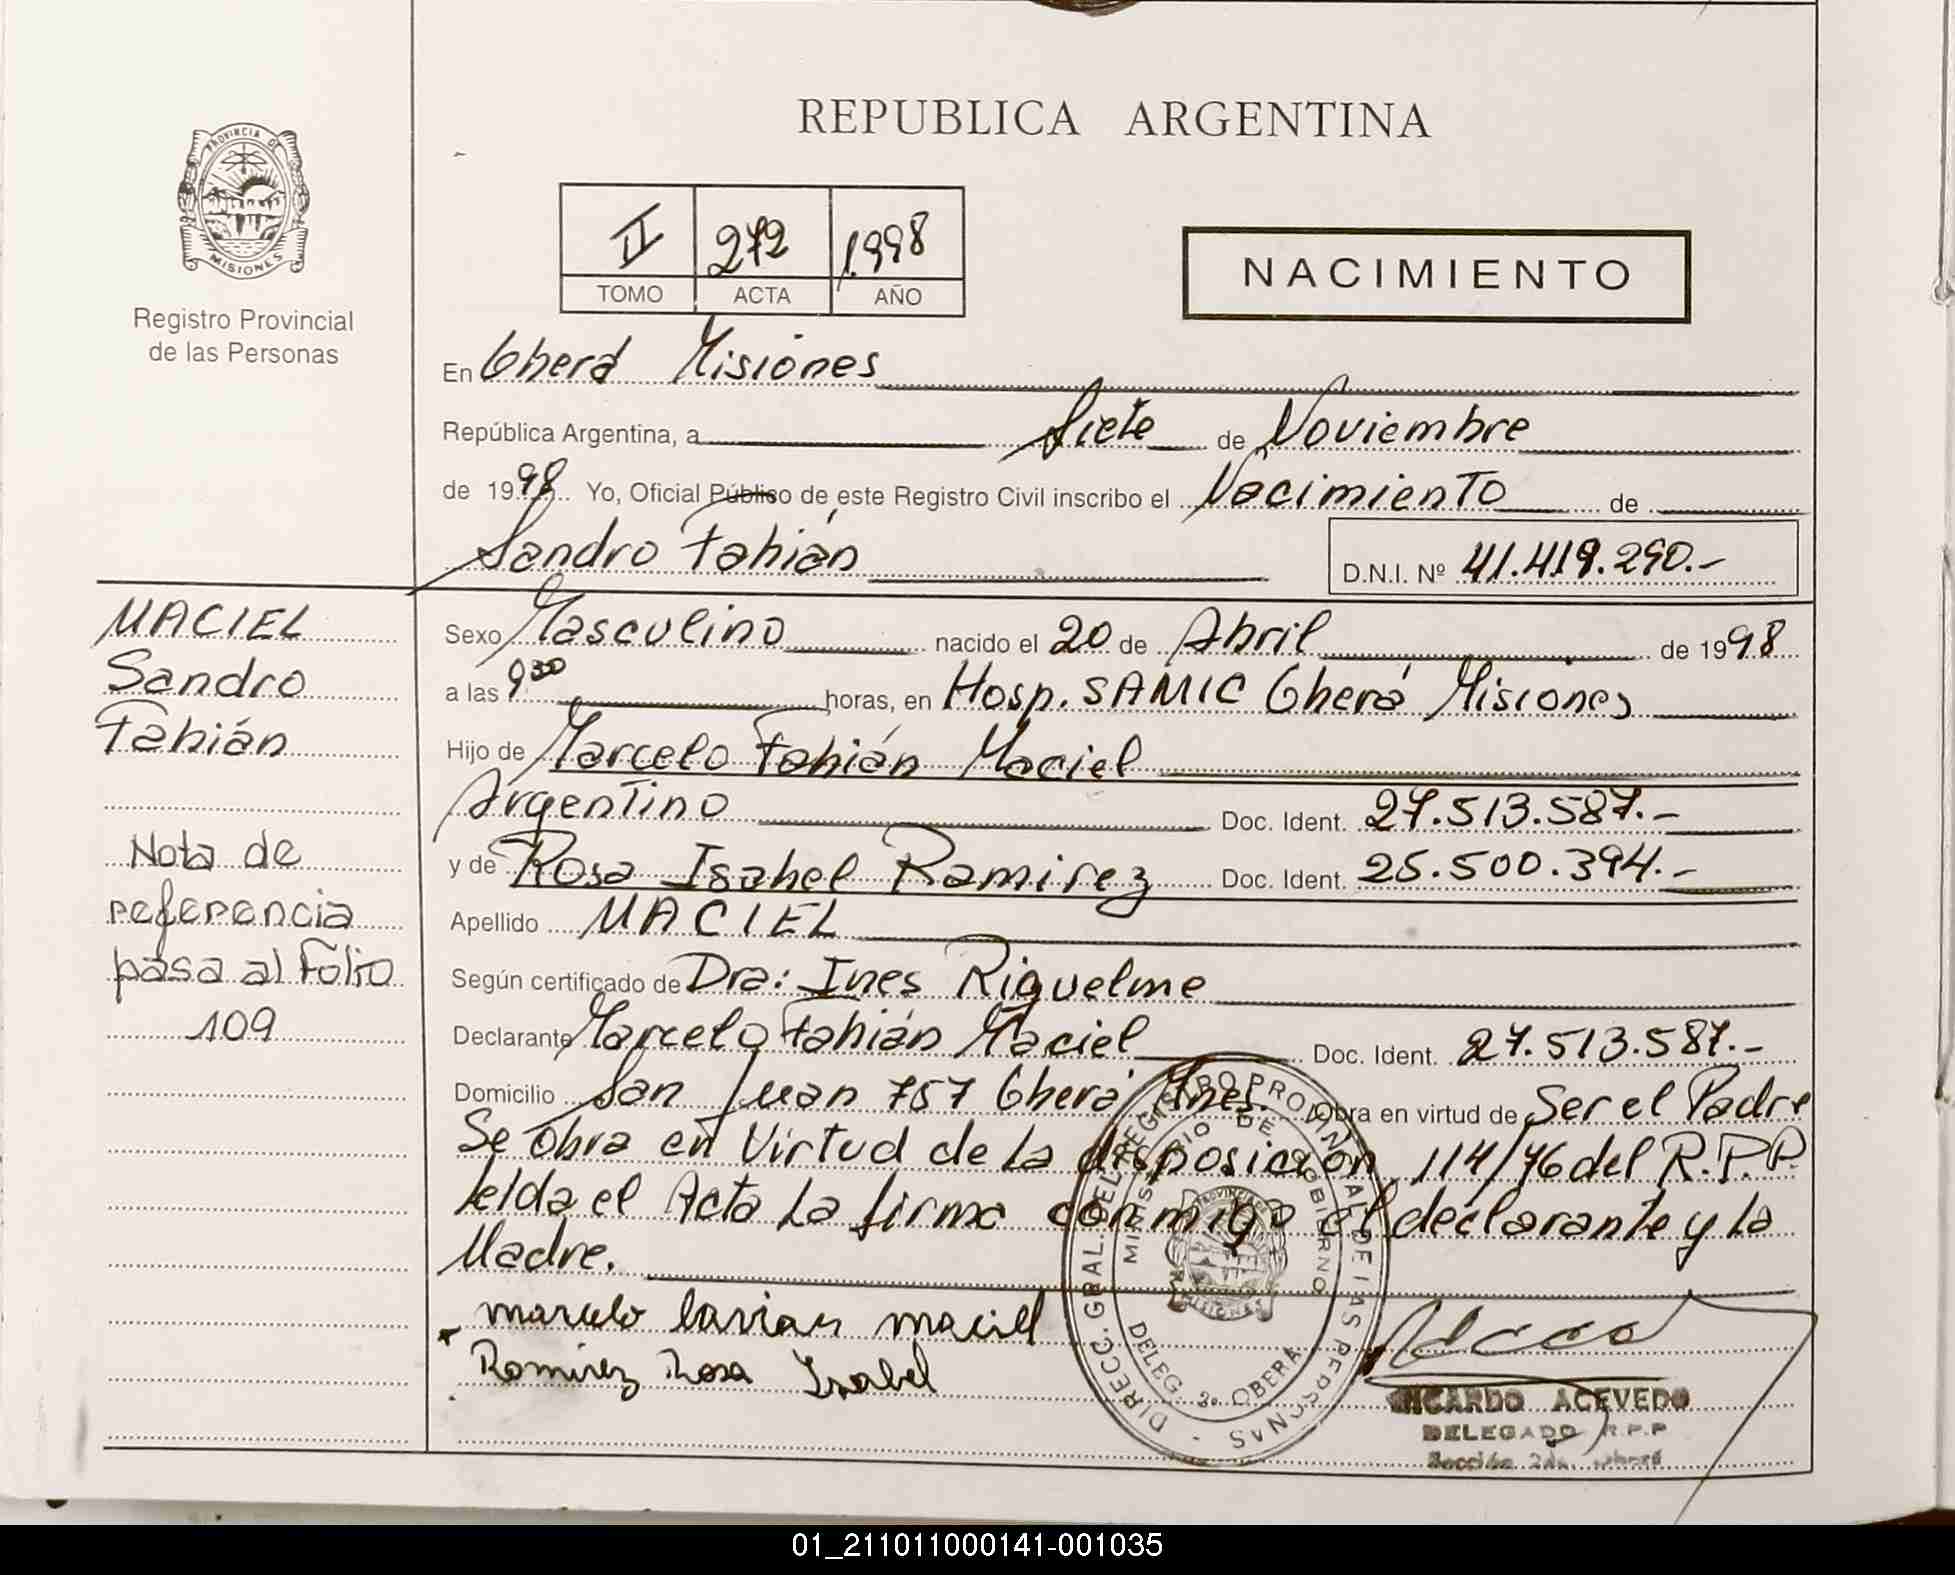 REPUBLICA ARGENTINA
PROVINCIA DE
MISIONES
Registro Provincial
de las Personas
II 272 1.998
TOMO ACTA AÑO
NACIMIENTO
En Oberá Misiones
República Argentina, a Siete de Noviembre
de 1998 Yo, Oficial Público de este Registro Civil inscribo el Nacimiento de
Sandro Fabián D.N.I. Nº 41.419.290.-
MACIEL
Sandro
Fabián
Nota de
referencia
pasa al Folio
109
Sexo Masculino nacido el 20 de Abril de 1998
a las 9 30 horas, en Hosp. SAMIC Oberá Misiones
Hijo de Marcelo Fabián Maciel
Argentino Doc. Ident. 27.513.587.-
y de Rosa Isabel Ramirez Doc. Ident. 25.500.394.-
Apellido MACIEL
Según certificado de Dra: Ines Riquelme
Declarante Marcelo Fabián Maciel Doc. Ident. 27.513.587.-
Domicilio San Juan 757 Oberá Mnes. Obra en virtud de Ser el Padre
Se obra en Virtud de la disposición 114/76 del R.P.P.
leída el Acta La firma conmigo el declarante y la
Madre.
marcelo favian maciel
Ramirez Rosa Isabel
DIRECC. GRAL. DEL REGISTRO PROVINCIAL DE LAS PERSONAS
MINISTERIO DE GOBIERNO
PROVINCIA DE
MISIONES
DELEG. 2º OBERÁ
RICARDO ACEVEDO
DELEGADO R.P.P
Sección 2da. Oberá
01_211011000141-001035